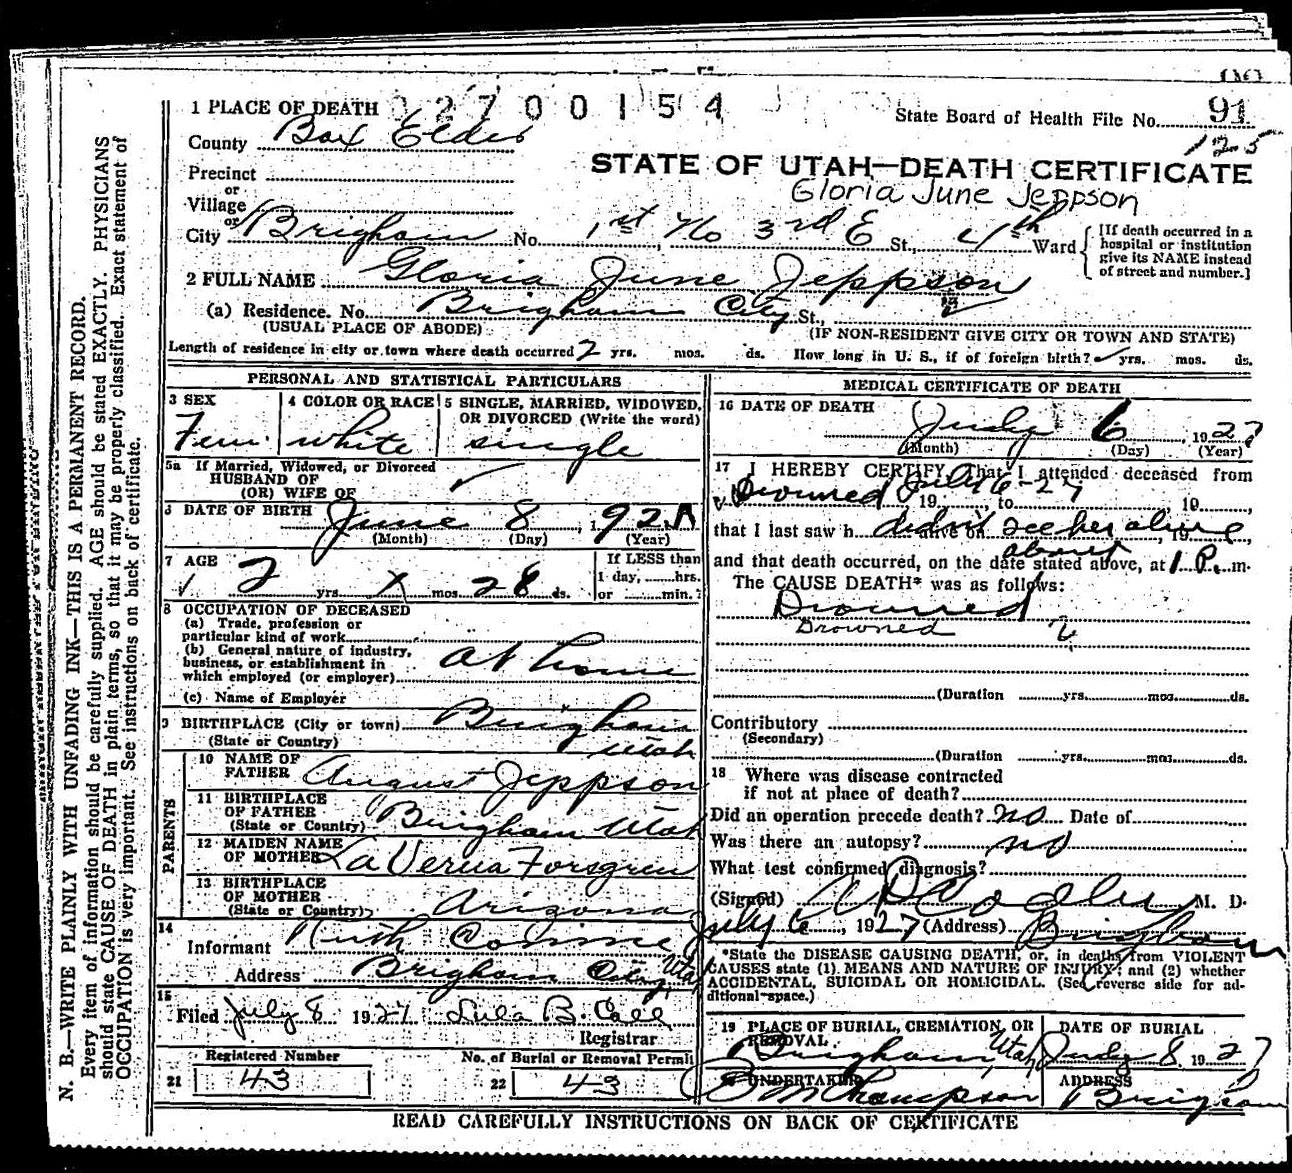 1 PLACE OF DEATH 2700154
State Board of Health File No. 91
125
County Box Elder
STATE OF UTAH—DEATH CERTIFICATE
Precinct
or
Gloria June Jeppson
Village
or
City Brigham No. 1st No 3rd E St., 4th Ward
[If death occurred in a hospital or institution give its NAME instead of street and number.]
2 FULL NAME Gloria June Jeppson
(a) Residence. No. Brigham City St.,
(USUAL PLACE OF ABODE) (IF NON-RESIDENT GIVE CITY OR TOWN AND STATE)
Length of residence in city or town where death occurred 2 yrs. mos. ds. How long in U. S., if of foreign birth? yrs. mos. ds.
PERSONAL AND STATISTICAL PARTICULARS
3 SEX Fem.
4 COLOR OR RACE white
5 SINGLE, MARRIED, WIDOWED, OR DIVORCED (Write the word) single
5a If Married, Widowed, or Divorced
HUSBAND OF
(OR) WIFE OF
6 DATE OF BIRTH June 8 192
(Month) (Day) (Year)
7 AGE 2 yrs. x mos. 28 ds.
If LESS than
1 day, hrs.
or min.?
8 OCCUPATION OF DECEASED
(a) Trade, profession or
particular kind of work
(b) General nature of industry,
business, or establishment in
which employed (or employer) at home
(c) Name of Employer
9 BIRTHPLACE (City or town) Brigham
(State or Country) Utah
PARENTS
10 NAME OF
FATHER August Jeppson
11 BIRTHPLACE
OF FATHER
(State or Country) Brigham Utah
12 MAIDEN NAME
OF MOTHER La Verna Forsgren
13 BIRTHPLACE
OF MOTHER
(State or Country) Arizona
14
Informant Ruth
Address Brigham City, Utah
15
Filed July 8 1927 Lula B. Call
Registrar
Registered Number
21 43
No. of Burial or Removal Permit
22 43
MEDICAL CERTIFICATE OF DEATH
16 DATE OF DEATH
July 6, 1927
(Month) (Day) (Year)
17 I HEREBY CERTIFY, That I attended deceased from
Drowned July 6-27 19 to , 19 ,
that I last saw h didn't see her alive alive on , 19
and that death occurred, on the date stated above, at about 1 P. m.
The CAUSE DEATH* was as follows:
Drowned
Drowned
(Duration yrs. mos. ds.
Contributory
(Secondary)
(Duration yrs. mos. ds.
18 Where was disease contracted
if not at place of death?
Did an operation precede death? no Date of
Was there an autopsy? no
What test confirmed diagnosis?
(Signed) M. D.
July 6, 1927 (Address) Brigham
*State the DISEASE CAUSING DEATH, or, in deaths from VIOLENT
CAUSES state (1) MEANS AND NATURE OF INJURY; and (2) whether
ACCIDENTAL, SUICIDAL OR HOMICIDAL. (See reverse side for ad-
ditional space.)
19 PLACE OF BURIAL, CREMATION, OR
REMOVAL
Brigham, Utah
DATE OF BURIAL
July 8 1927
UNDERTAKER
Thompson
ADDRESS
Brigham
READ CAREFULLY INSTRUCTIONS ON BACK OF CERTIFICATE
N. B.—WRITE PLAINLY WITH UNFADING INK—THIS IS A PERMANENT RECORD.
Every item of information should be carefully supplied. AGE should be stated EXACTLY. PHYSICIANS
should state CAUSE OF DEATH in plain terms, so that it may be properly classified. Exact statement of
OCCUPATION is very important. See instructions on back of certificate.